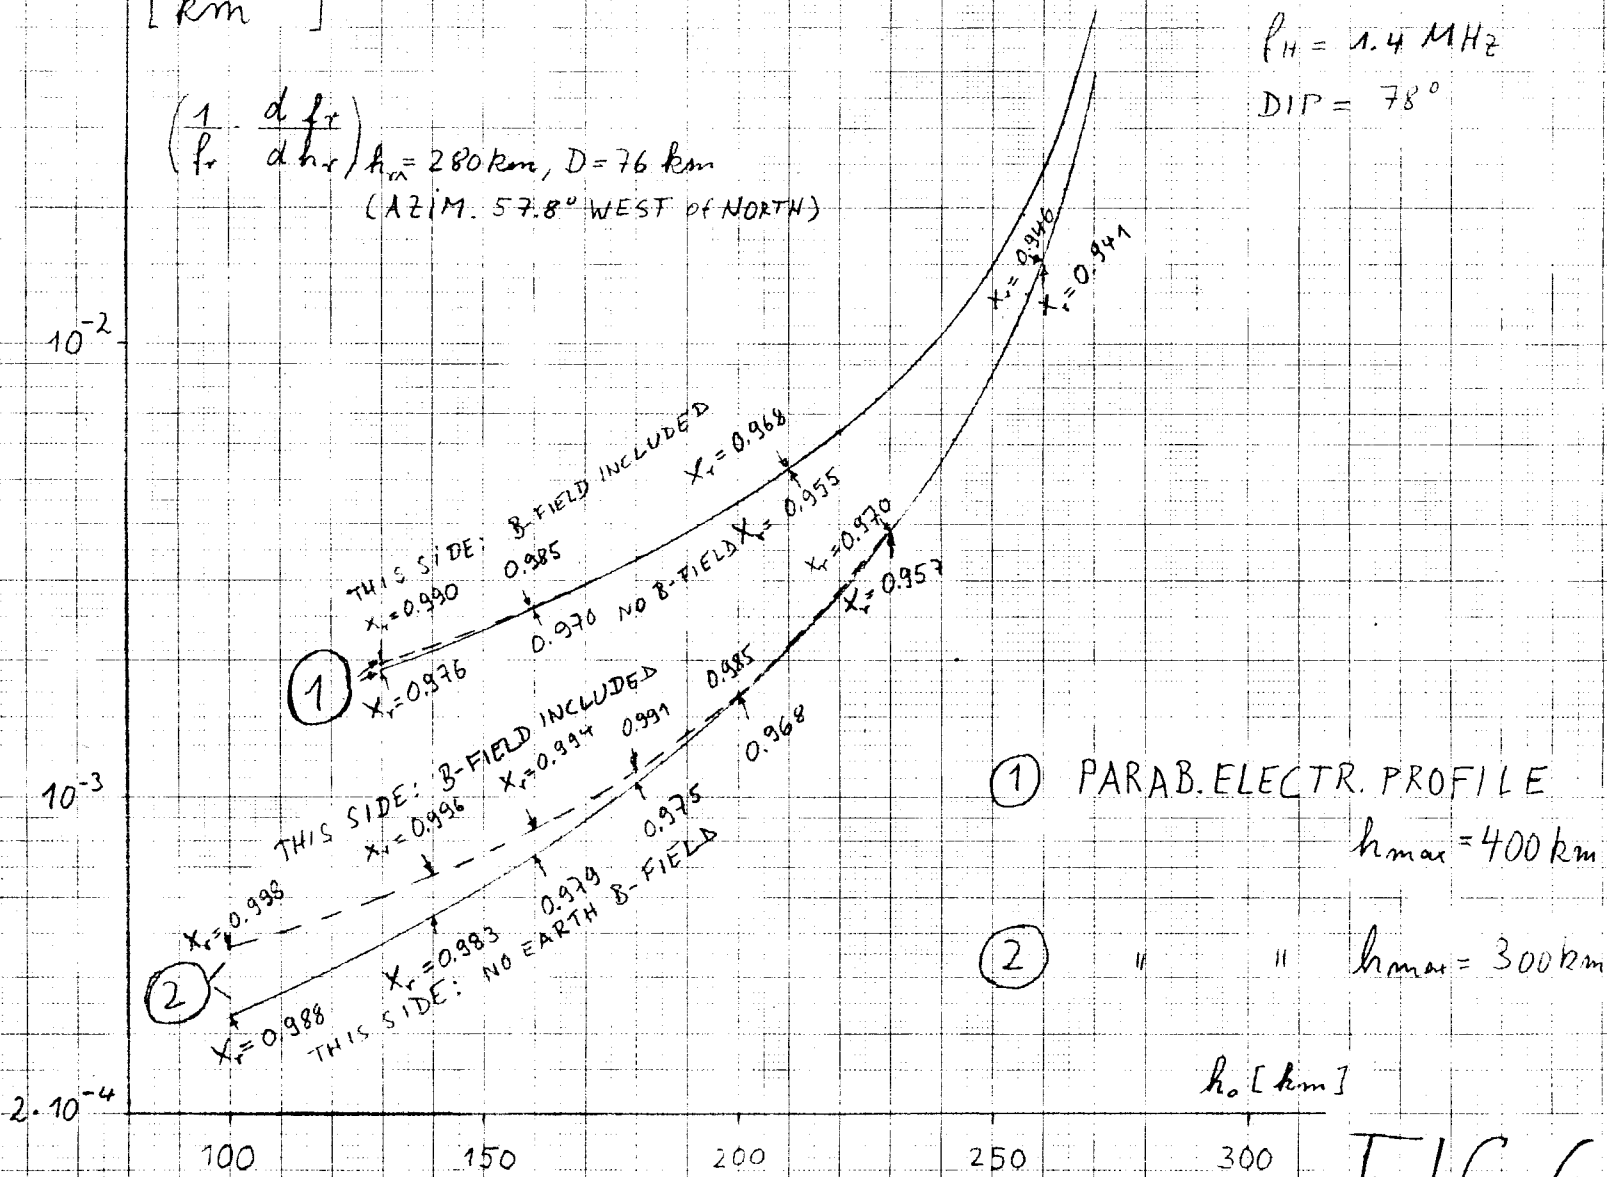 [km ]
f_H = 1.4 MHz
DIP = 78°
(1/f_r · d f_r/d h_r) h_m = 280 km, D = 76 km
(AZIM. 57.8° WEST of NORTH)
10⁻²
X_r = 0.946
X_r = 0.941
THIS SIDE: B-FIELD INCLUDED
X_r = 0.990
0.985
X_r = 0.968
1
X_r = 0.976
0.970
NO B-FIELD
X_r = 0.955
X_r = 0.970
X_r = 0.957
THIS SIDE: B-FIELD INCLUDED
X_r = 0.998
X_r = 0.996
X_r = 0.994
0.991
0.985
10⁻³
2
X_r = 0.988
X_r = 0.983
0.979
0.975
0.968
THIS SIDE: NO EARTH B-FIELD
1 PARAB. ELECTR. PROFILE
h_max = 400 km
2 " " h_max = 300 km
h_o [km]
2·10⁻⁴
100 150 200 250 300